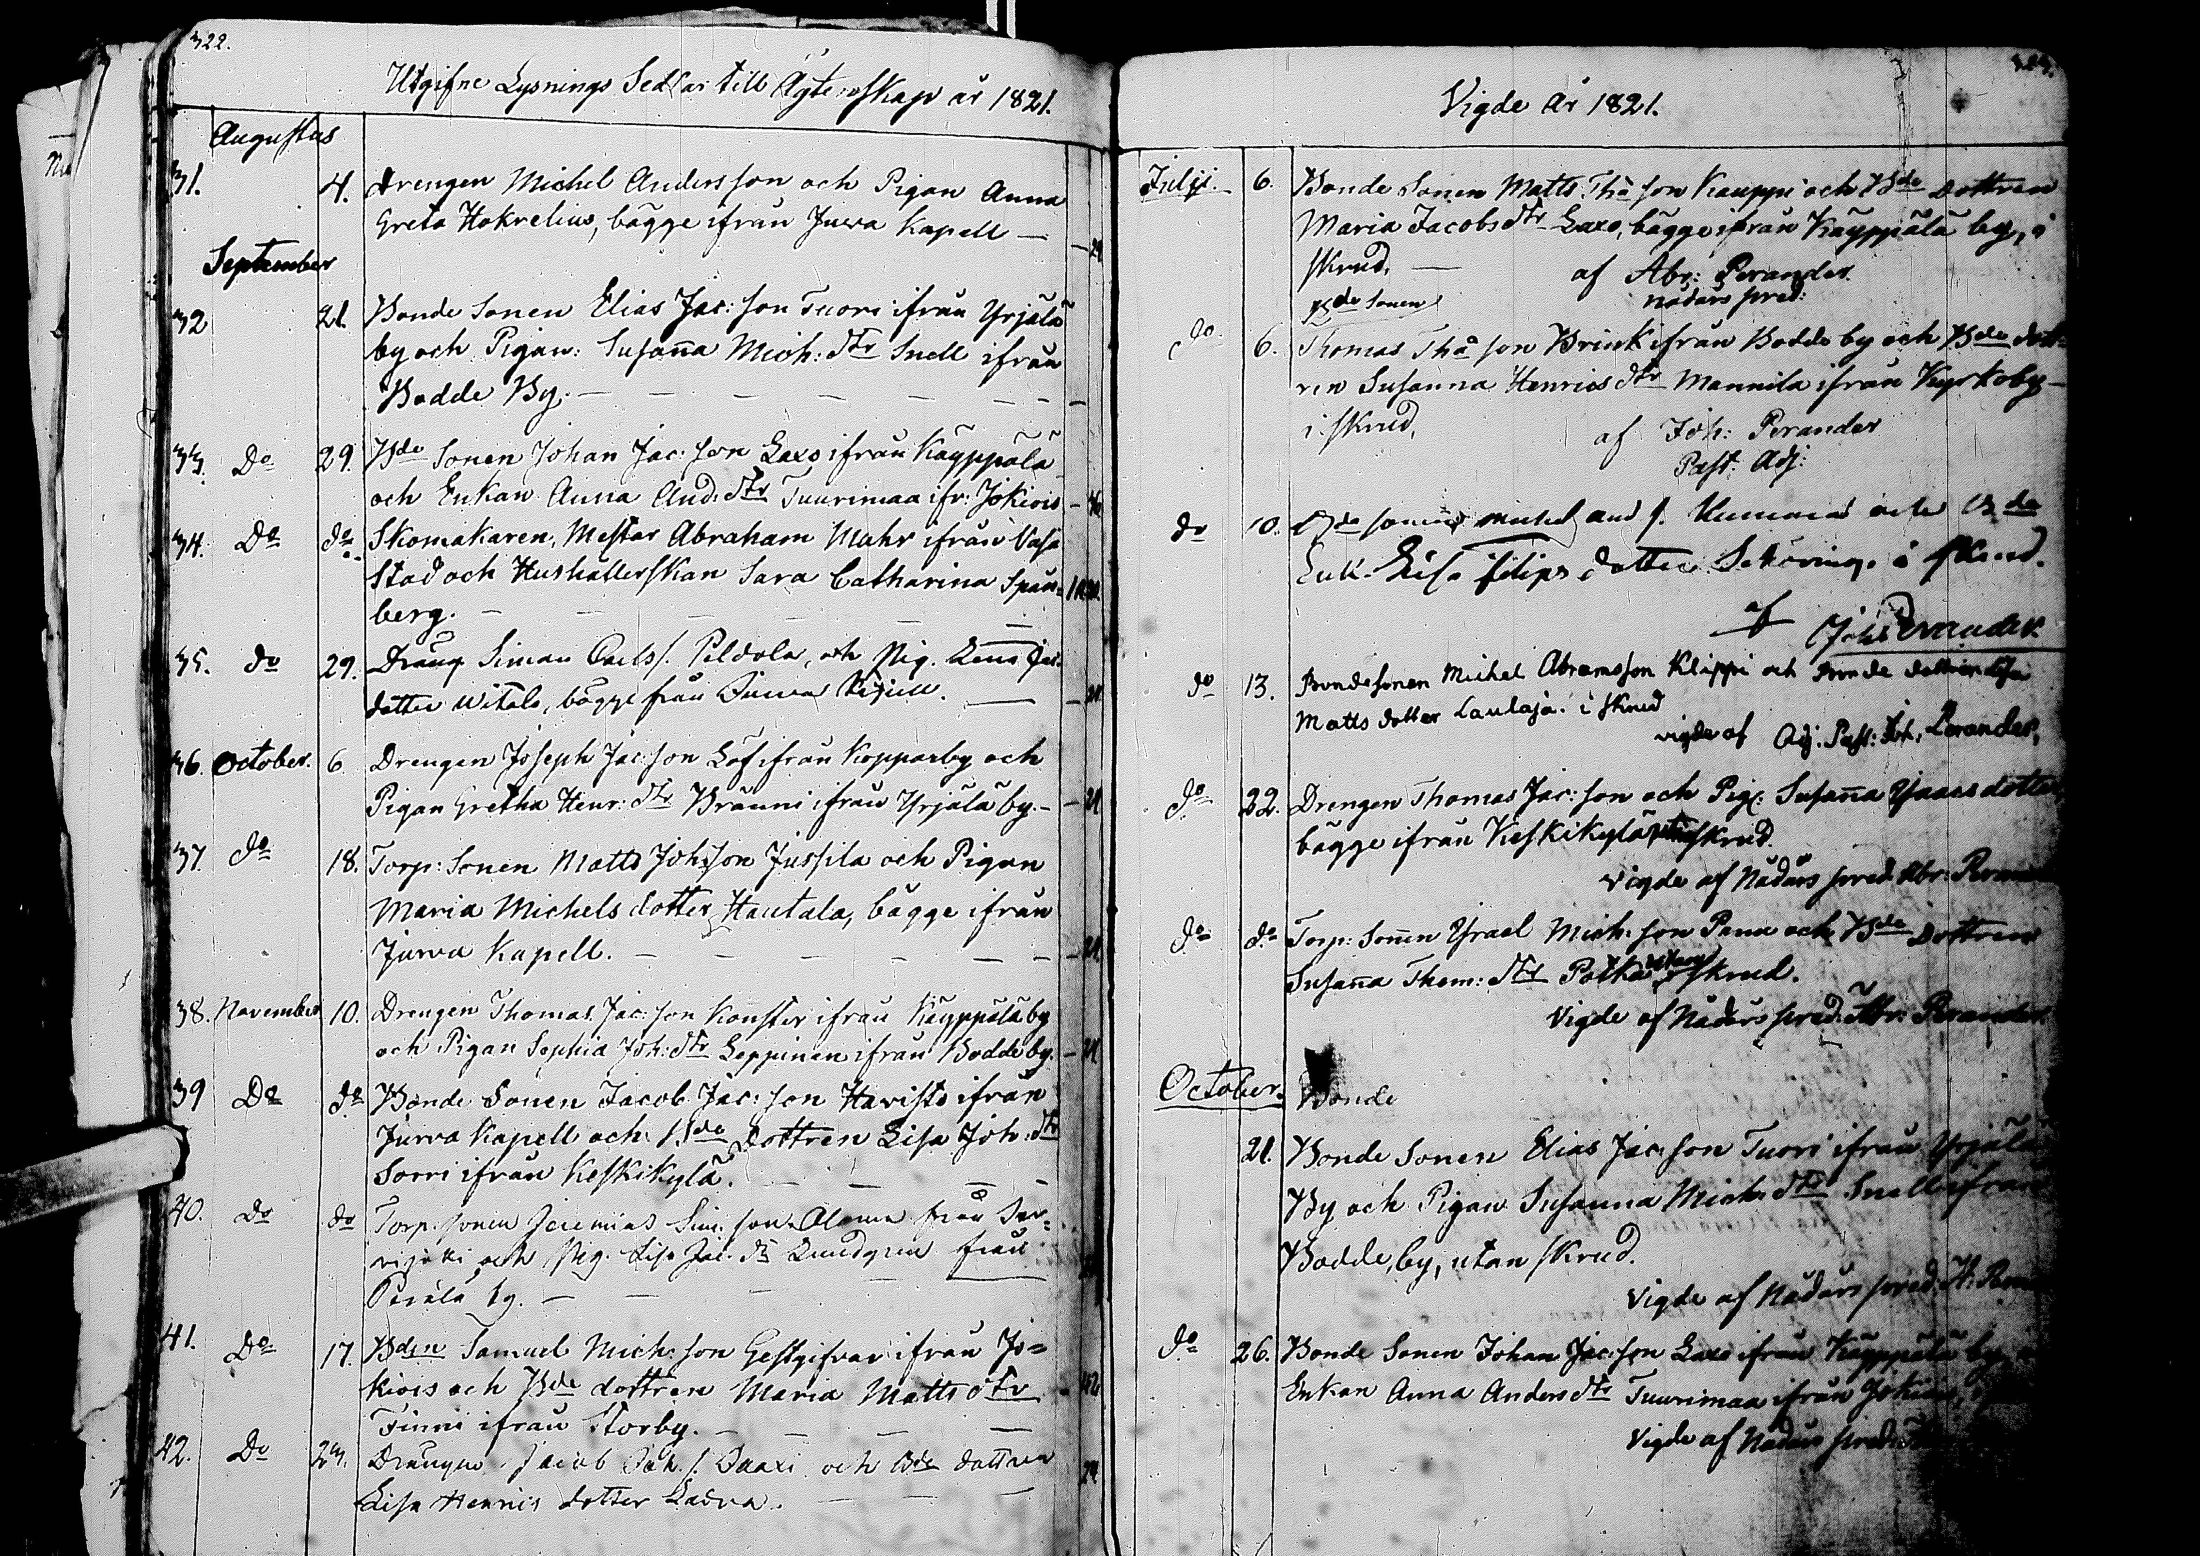 322.
Utgifne Lysnings Sedlar till Ägtenskap år 1821.
Augustus
31. 4. Drengen Michel Andersson och Pigan Anna
Greta Hokrelius, bägge ifrån Jurva Kapell — 24
September
32 21. Bonde Sonen Elias Jac: son Tuori ifrån Yrjälä
by och Pigan: Susana Mich: dtr Snell ifrån
Bodde By. —
33. Do 29. Bde Sonen Johan Jac: son Laxo ifrån Käyppälä
och Enkan Anna And: dtr Tuurimaa ifr: Jokiois —
34. Do do Skomakaren, Mestar Abraham Mahr ifrån Vasa
Stad och Hushållerskan Sara Catharina Span=
berg. —
35. do 29. Dräng Simon Carls s. Peldola, och Pig.
dotter Witala, bägge från
36. October. 6. Drengen Joseph Jac: son Löf ifrån Kopparby och
Pigan Gretha Henr: dtr Bränni ifrån Yrjälä by. — 24
37. do 18. Torp: Sonen Matts Joh: son Jussila och Pigan
Maria Michels dotter Hautala, bägge ifrån
Jurva Kapell. — 24
38. November 10. Drengen Thomas Jac: son Konster ifrån Käyppälä by
och Pigan Sophia Joh: dtr Leppinen ifrån Bodde by. — 24
39 Do do Bonde Sonen Jacob Jac: son Haristo ifrån
Jurva Kapell och Bde Dottren Lisa Joh: dtr
Sorri ifrån Keskikylä. —
40. Do do Torp. sonen Jeremias Sim: son från
och Pig. Lisa Jac. dr från
Perälä by. —
41. Do 17. Bden Samuel Mich: son Gestgifvar ifrån Jo=
kiois och Bde dottren Maria Matts dtr
Finni ifrån Storby. —
42. Do 23. Drängen Jacob Joh. s. och Bde dottren
Lisa Henrics dotter —
323.
Vigde År 1821.
Julji. 6. Bonde Sonen Matts Tho son Kauppi och Bde Dottren
Maria Jacobs dtr Laxo, bägge ifrån Käyppälä by, i
skrud, — af Abr: Perander
Nådårs pred:
Bde Sonen
do 6. Thomas Tho son Brink ifrån Bodde by och Bde dott=
ren Susanna Henrics dtr Mannila ifrån Kyrkoby —
i skrud, af Joh: Perander
Past. Adj:
do 10. Bde sonen Michel And s. och Bde
Enk. Lisa Filips dotter i skrud.
af Joh: Perander
do 13. Bondesonen Michel Abramsson Klippi och Bonde dottren Lisa
Matts dotter Laulaja. i skrud
vigde af Adj. Past: Joh. Perander,
do 22. Drengen Thomas Jac: son och Pig: Susana dotter,
bägge ifrån Keskikylä skrud.
Vigde af Nådårs pred. Abr: Perander
do do Torp: Sonen Ysrael Mich: son Pana och Bde Dottren
Susana Thom: dtr Potka utan skrud.
Vigde af Nådårs pred. Abr: Perander
October. Bonde
21. Bonde Sonen Elias Jac: son Tuori ifrån Yrjälä
By och Pigan Susanna Mich: dtr Snell ifrån
Bodde by, utan skrud.
Vigde af Nådårs pred.
do 26. Bonde Sonen Johan Jac: son Laxo ifrån Käyppälä by
Enkan Anna Anders dtr Tuurimaa ifrån Jokiois,
Vigde af Nådårs pred: